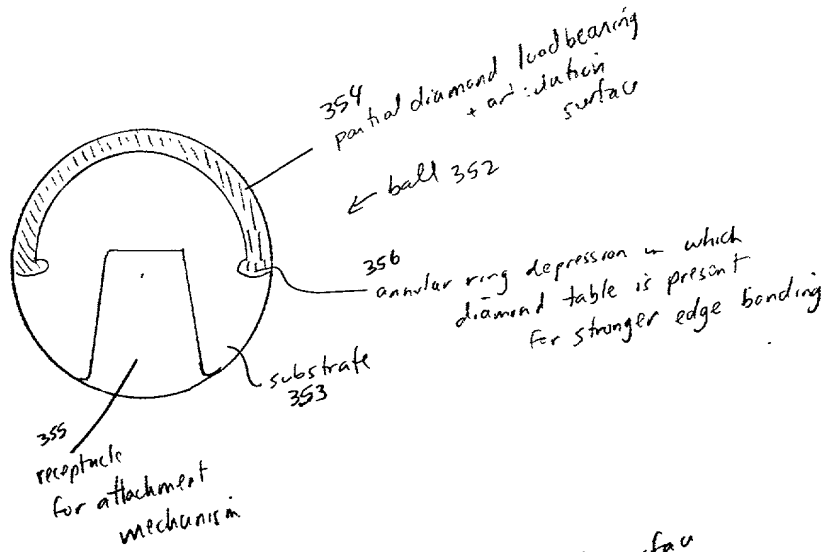 354
partial diamond load bearing
+ articulation
surface
ball 352
356
annular ring depression in which
diamond table is present
for stronger edge bonding
substrate
353
355
receptacle
for attachment
mechanism